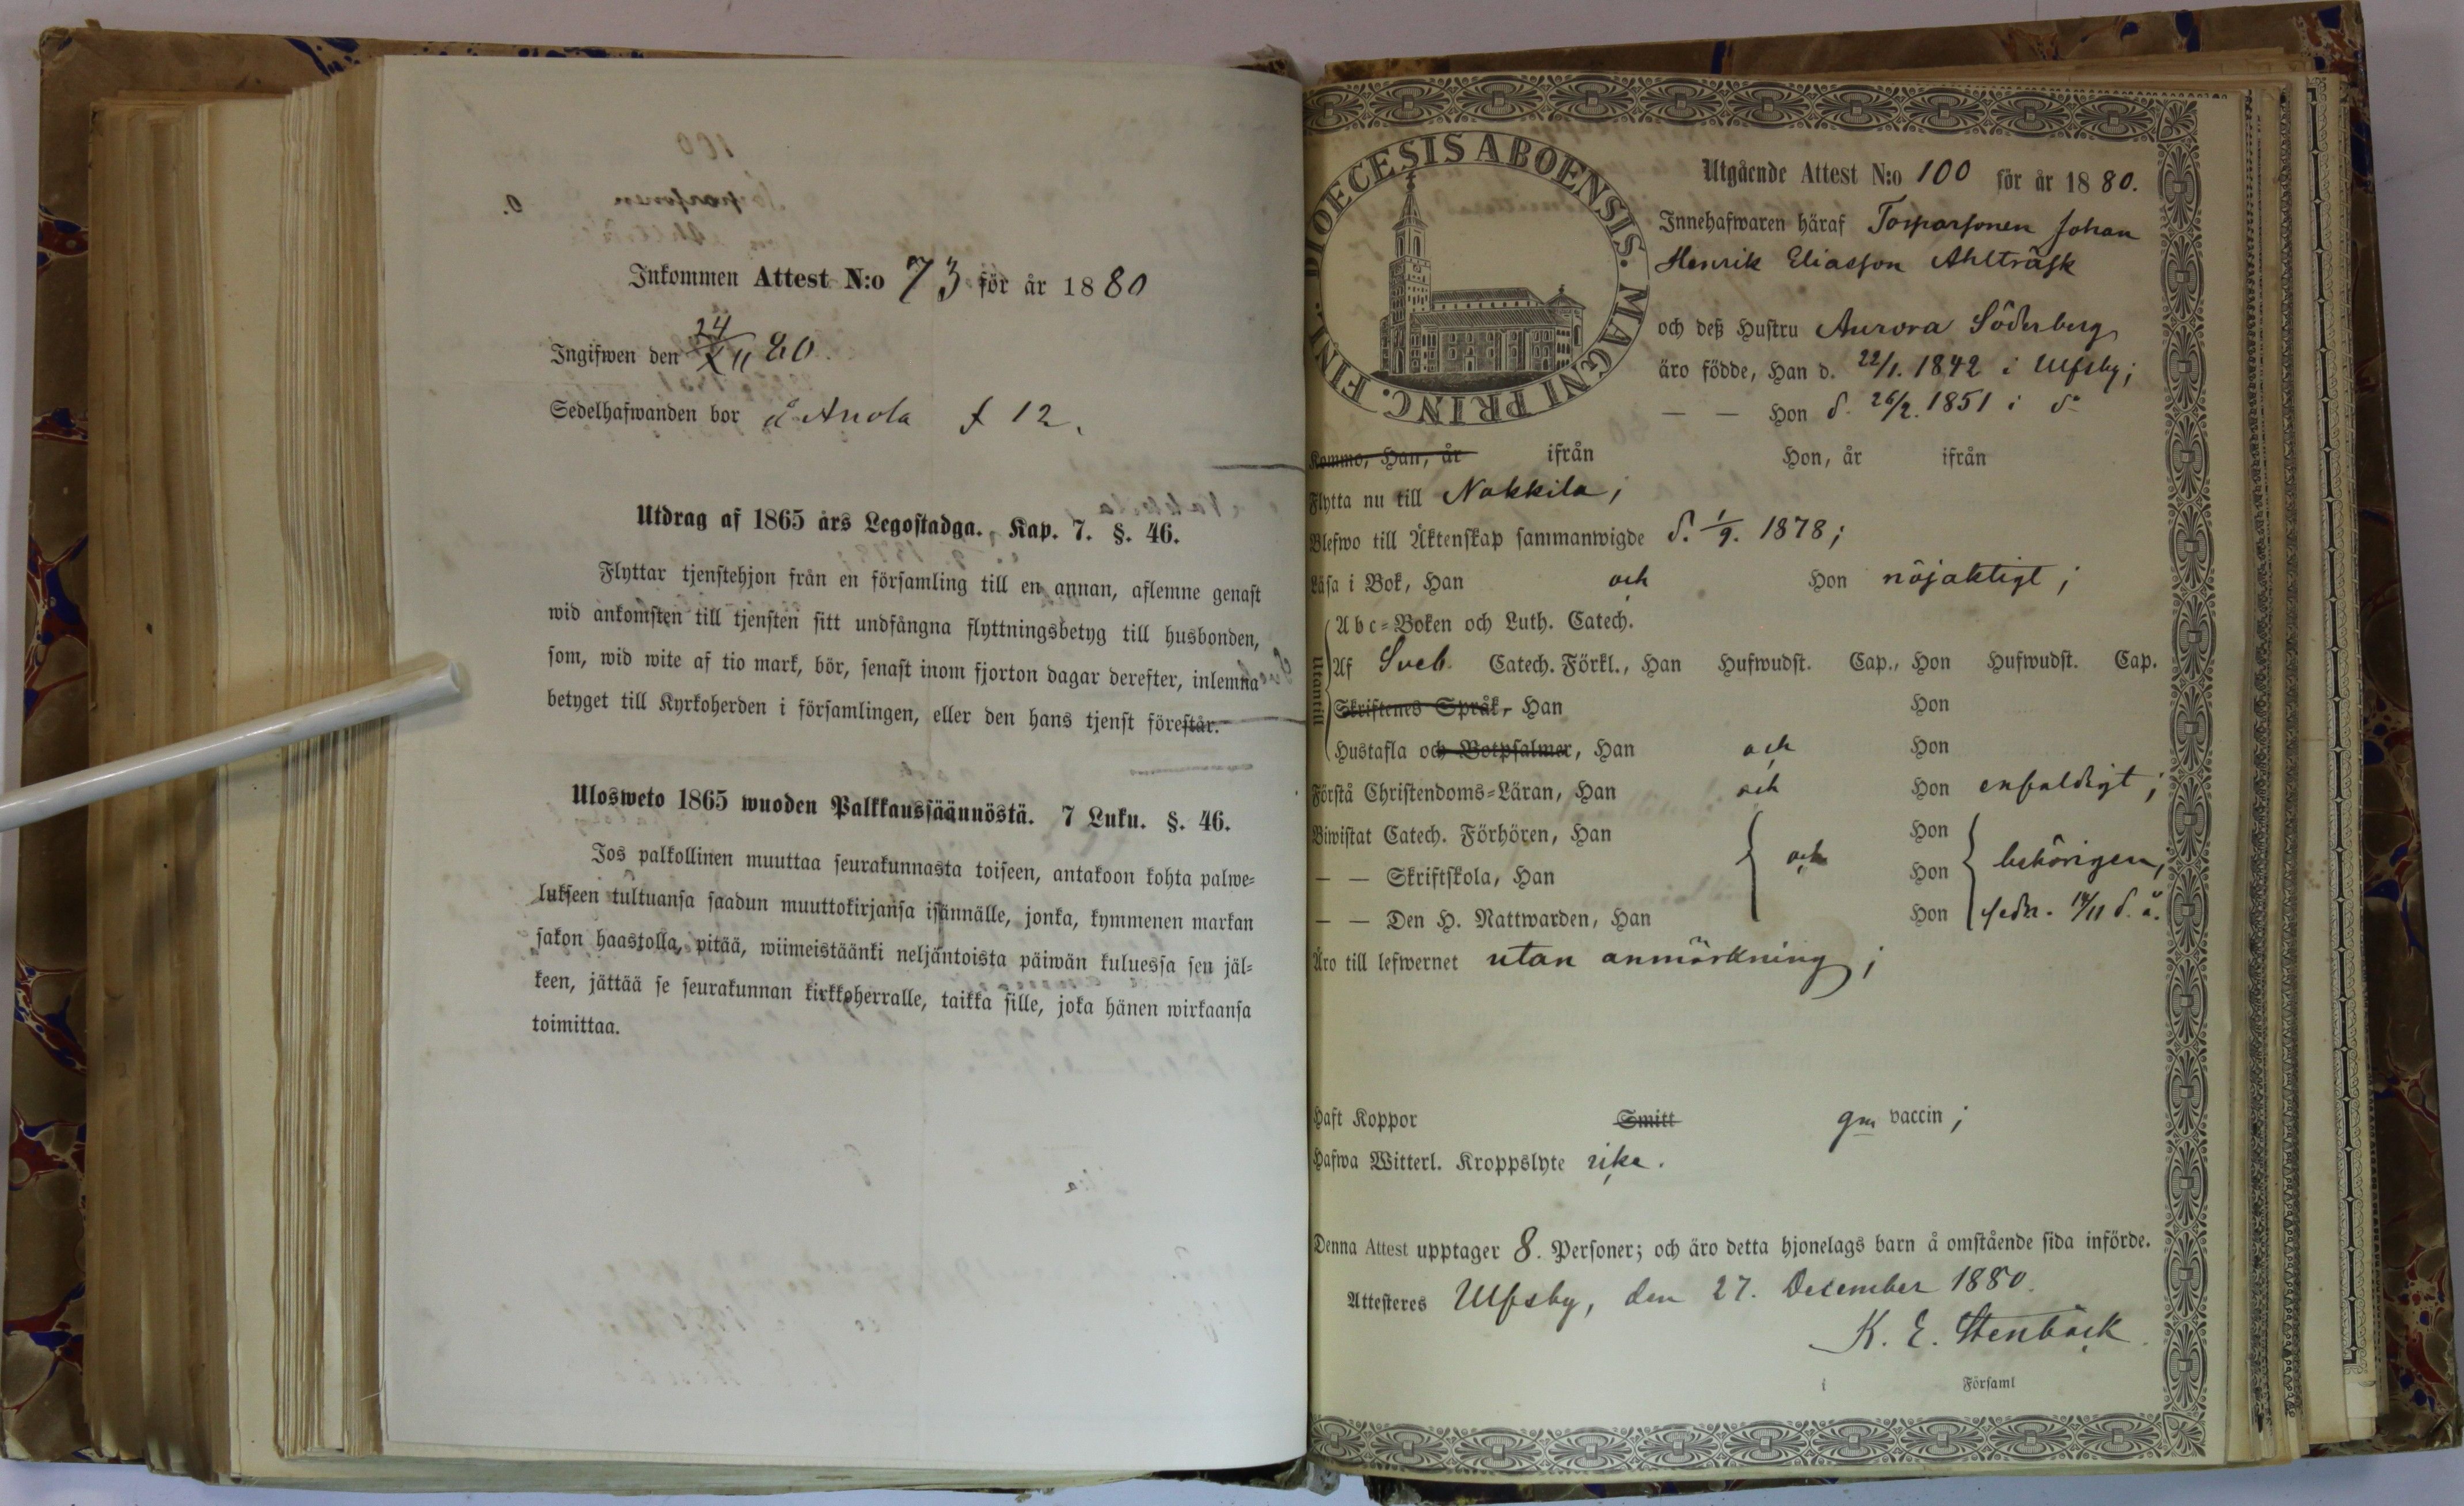 Inkommen Attest N:o 73 för år 1880
Ingifwen den 24/11 80.
Sedelhafwanden bor å Anola f 12.
Utdrag af 1865 års Legostadga. Kap. 7. §. 46.
Flyttar tjenstehjon från en församling till en annan, aflemne genast
wid ankomsten till tjensten sitt undfångna flyttningsbetyg till husbonden,
som, wid wite af tio mark, bör, senast inom fjorton dagar derefter, inlemna
betyget till Kyrkoherden i församlingen, eller den hans tjenst förestår.
Ulosweto 1865 wuoden Palkkaussäännöstä. 7 Luku. §. 46.
Jos palkollinen muuttaa seurakunnasta toiseen, antakoon kohta palwe=
lukseen tultuansa saadun muuttokirjansa isännälle, jonka, kymmenen markan
sakon haastolla, pitää, wiimeistäänki neljäntoista päiwän kuluessa sen jäl=
keen, jättää se seurakunnan kirkkoherralle, taikka sille, joka hänen wirkaansa
toimittaa.
DIOECESIS ABOENSIS. MAGNI PRINC. FINL.
Utgående Attest N:o 100 för år 1880.
Innehafwaren häraf Torparsonen Johan
Henrik Eliasson Ahlträsk
och deß Hustru Aurora Söderberg
äro födde, Han d. 22/1. 1842 i Ulfsby;
— — Hon d. 26/2. 1851 i do
Kommo, Han, år ifrån Hon, år ifrån
Flytta nu till Nakkila;
Blefwo till Äktenskap sammanwigde d. 1/9. 1878;
Läsa i Bok, Han och Hon nöjaktigt;
Utantill
Abc=Boken och Luth. Catech.
Af Sveb. Catech. Förkl., Han Hufwudst. Cap., Hon Hufwudst. Cap.
Skriftenes Språk, Han Hon
Hustafla och Botpsalmer, Han och Hon
Förstå Christendoms=Läran, Han och Hon enfaldigt;
Biwistat Catech. Förhören, Han Hon
— — Skriftskola, Han och Hon behörigen,
— — Den H. Nattwarden, Han Hon sedn. 14/11 d. å.
Äro till lefwernet utan anmärkning;
Haft Koppor Smitt gm vaccin;
Hafwa Witterl. Kroppslyte icke.
Denna Attest upptager 8. Personer; och äro detta hjonelags barn å omstående sida införde.
Attesteres Ulfsby, den 27. December 1880.
K. E. Stenbäck.
i Församl